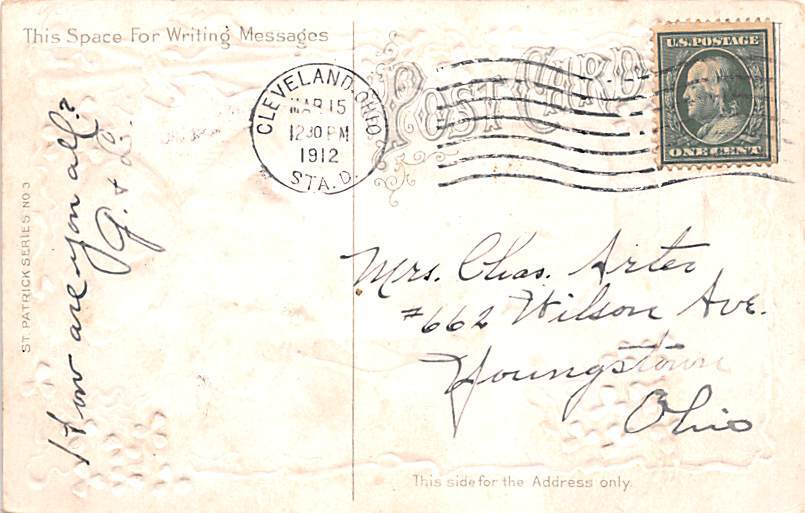 This Space For Writing Messages
POST CARD
U.S. POSTAGE
ONE CENT
CLEVELAND, OHIO
MAR 15
12 30 PM
1912
STA. D.
How are you all?
G. & L.
ST. PATRICK SERIES NO 3
Mrs. Chas. Arter
#662 Wilson Ave.
Youngstown
Ohio
This side for the Address only.